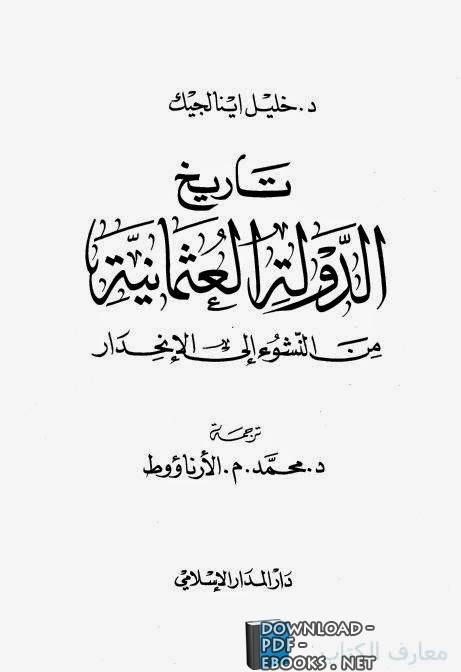 د. خليل اينالجيك
تاريخ
الدَّولة العُثمانيّة
مِنَ النّشوُء إلى الإنحِدار
ترجمَة
د. محمَّد. م. الأرناؤوط
دَار المدَار الإسلامي
DOWNLOAD -
PDF -
EBOOKS . NET
معارف الكتاب